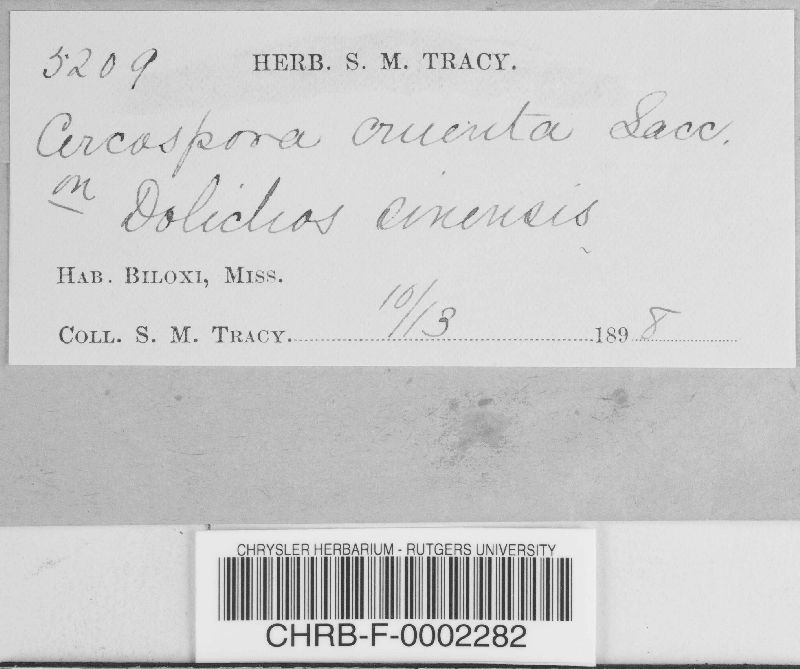 5209 HERB. S. M. TRACY.
Cercospora cruenta Sacc.
on Dolichos sinensis
HAB. BILOXI, MISS.
COLL. S. M. TRACY. 10/13 1898
CHRYSLER HERBARIUM - RUTGERS UNIVERSITY
CHRB-F-0002282